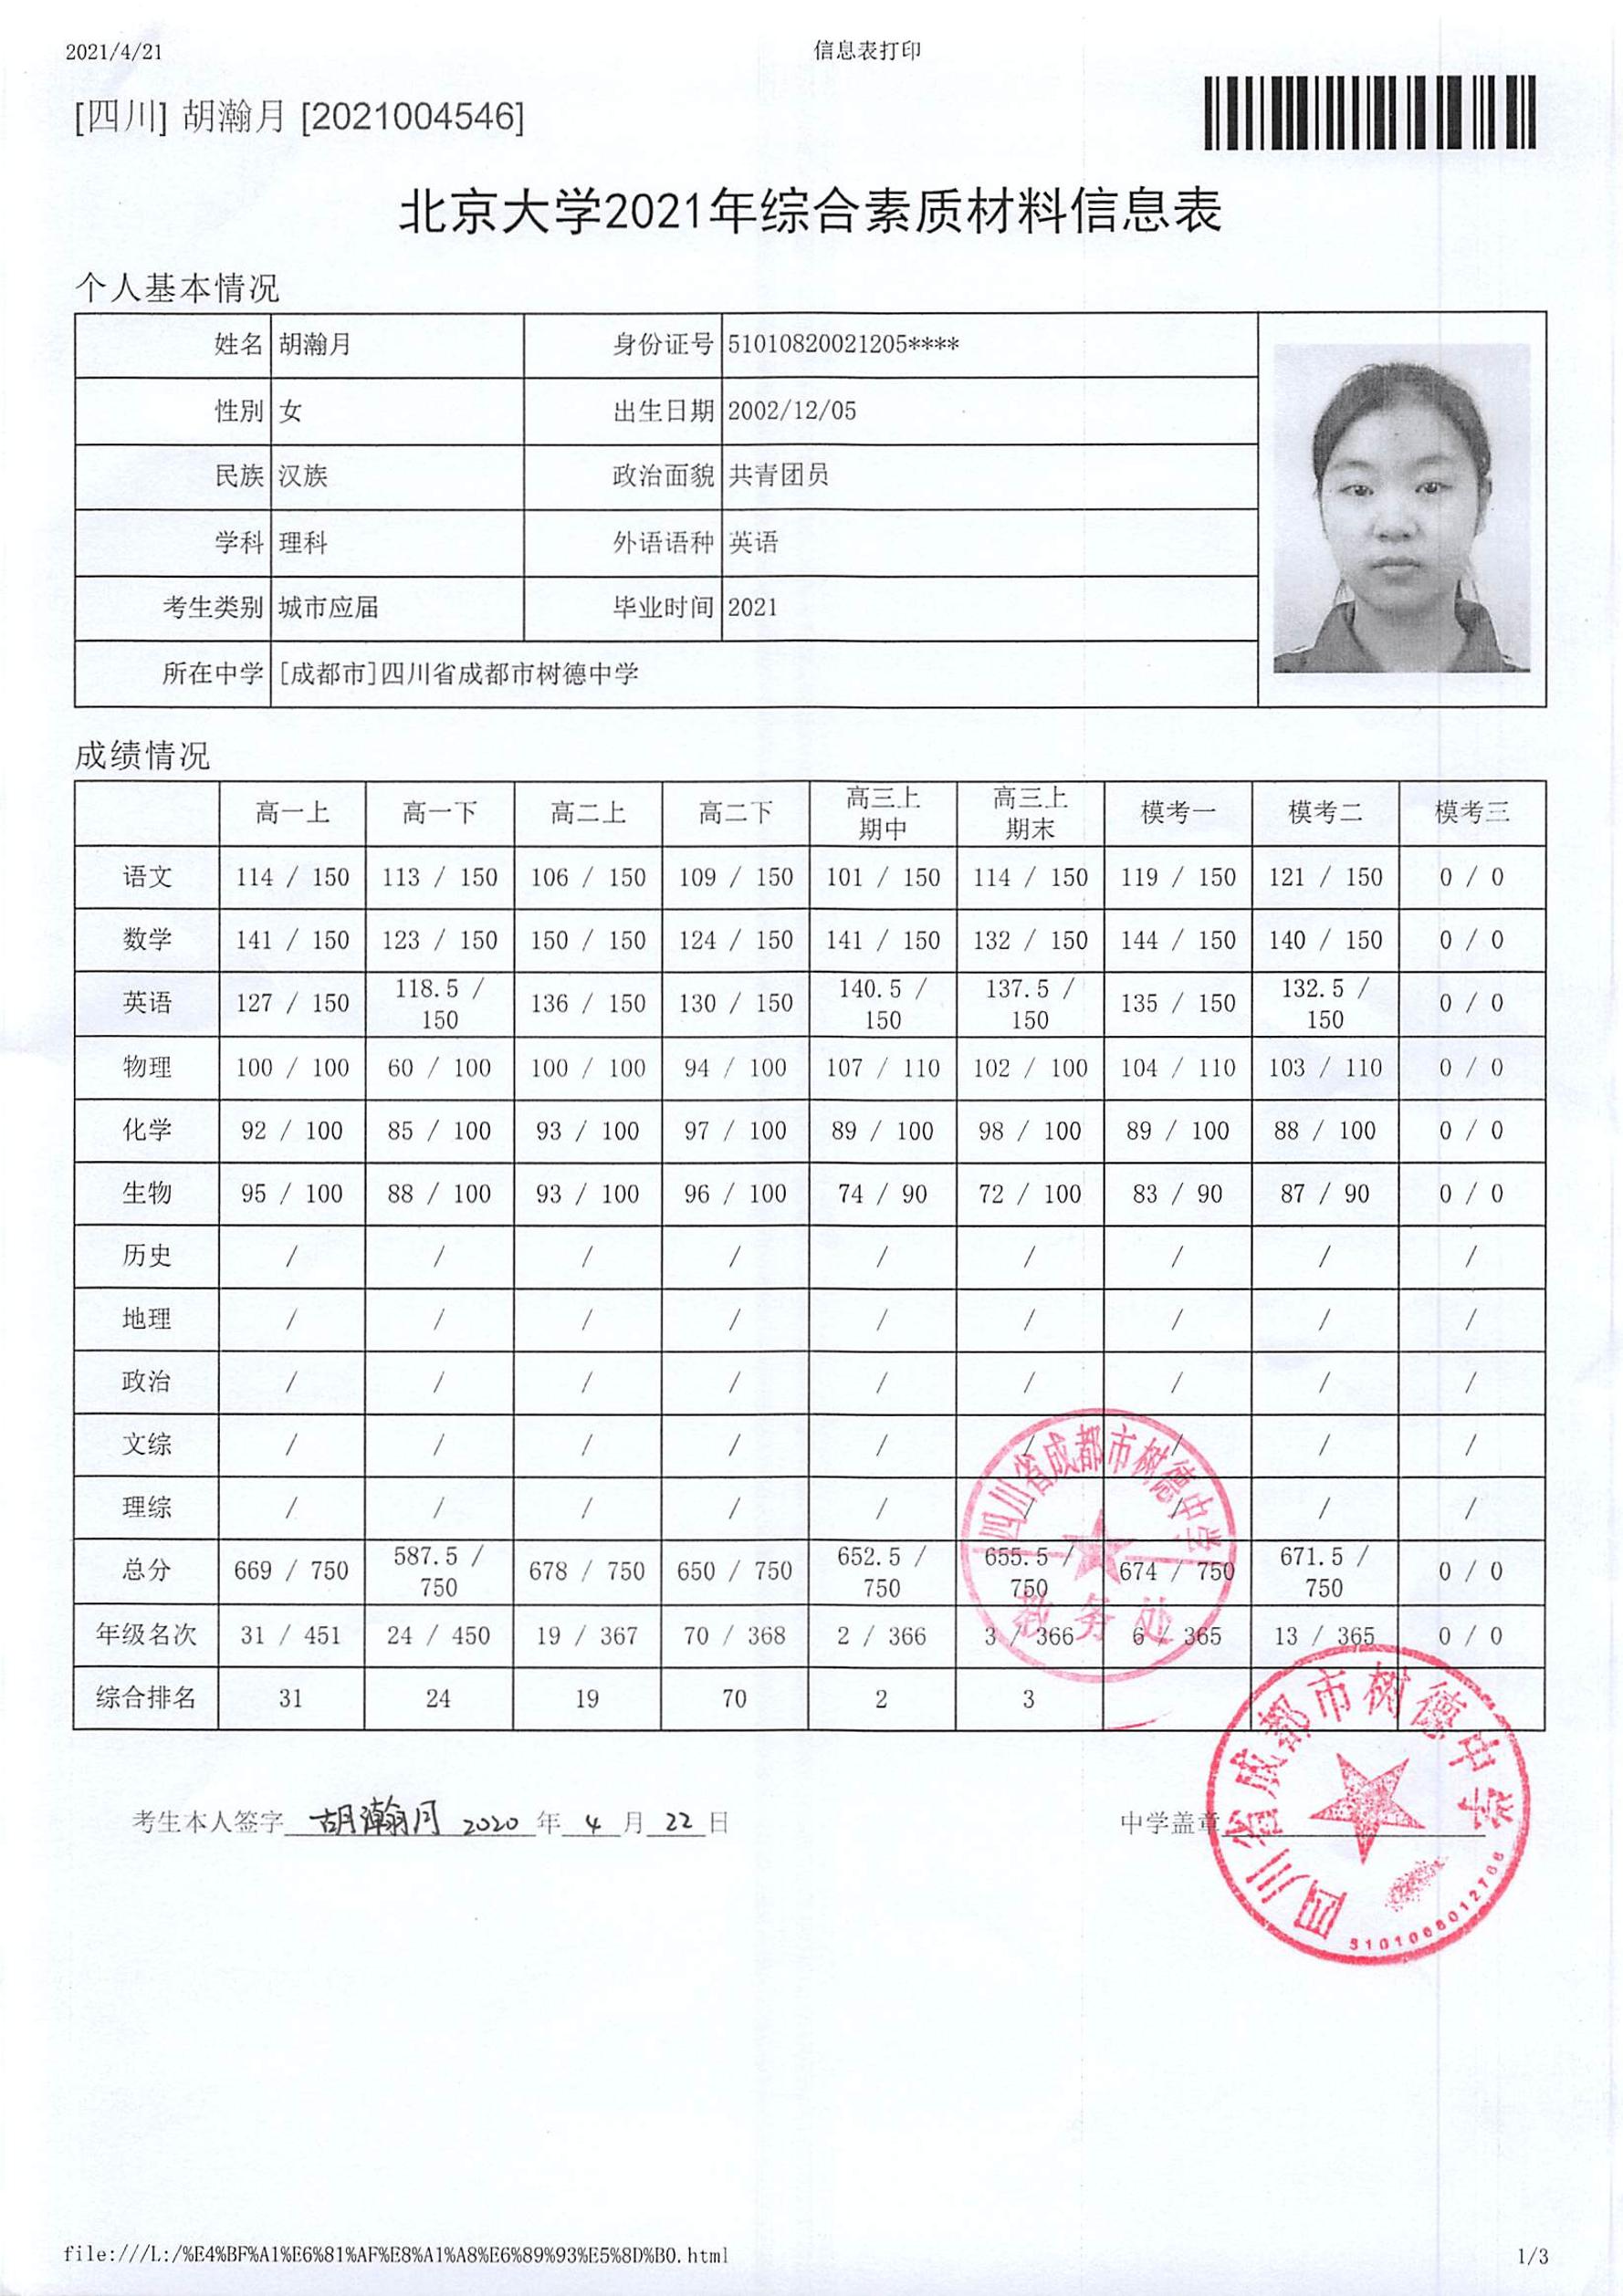 2021/4/21 信息表打印
[四川] 胡瀚月 [2021004546]
北京大学2021年综合素质材料信息表
个人基本情况
姓名 胡瀚月 身份证号 51010820021205****
性别 女 出生日期 2002/12/05
民族 汉族 政治面貌 共青团员
学科 理科 外语语种 英语
考生类别 城市应届 毕业时间 2021
所在中学 [成都市]四川省成都市树德中学
成绩情况
高一上 高一下 高二上 高二下 高三上期中 高三上期末 模考一 模考二 模考三
语文 114 / 150 113 / 150 106 / 150 109 / 150 101 / 150 114 / 150 119 / 150 121 / 150 0 / 0
数学 141 / 150 123 / 150 150 / 150 124 / 150 141 / 150 132 / 150 144 / 150 140 / 150 0 / 0
英语 127 / 150 118.5 / 150 136 / 150 130 / 150 140.5 / 150 137.5 / 150 135 / 150 132.5 / 150 0 / 0
物理 100 / 100 60 / 100 100 / 100 94 / 100 107 / 110 102 / 100 104 / 110 103 / 110 0 / 0
化学 92 / 100 85 / 100 93 / 100 97 / 100 89 / 100 98 / 100 89 / 100 88 / 100 0 / 0
生物 95 / 100 88 / 100 93 / 100 96 / 100 74 / 90 72 / 100 83 / 90 87 / 90 0 / 0
历史 / / / / / / / / /
地理 / / / / / / / / /
政治 / / / / / / / / /
文综 / / / / / / / / /
理综 / / / / / / / / /
总分 669 / 750 587.5 / 750 678 / 750 650 / 750 652.5 / 750 655.5 / 750 674 / 750 671.5 / 750 0 / 0
年级名次 31 / 451 24 / 450 19 / 367 70 / 368 2 / 366 3 / 366 6 / 365 13 / 365 0 / 0
综合排名 31 24 19 70 2 3
四川省成都市树德中学
教务处
考生本人签字 胡瀚月 2020 年 4 月 22 日 中学盖章
四川省成都市树德中学
file:///L:/%E4%BF%A1%E6%81%AF%E8%A1%A8%E6%89%93%E5%8D%B0.html 1/3